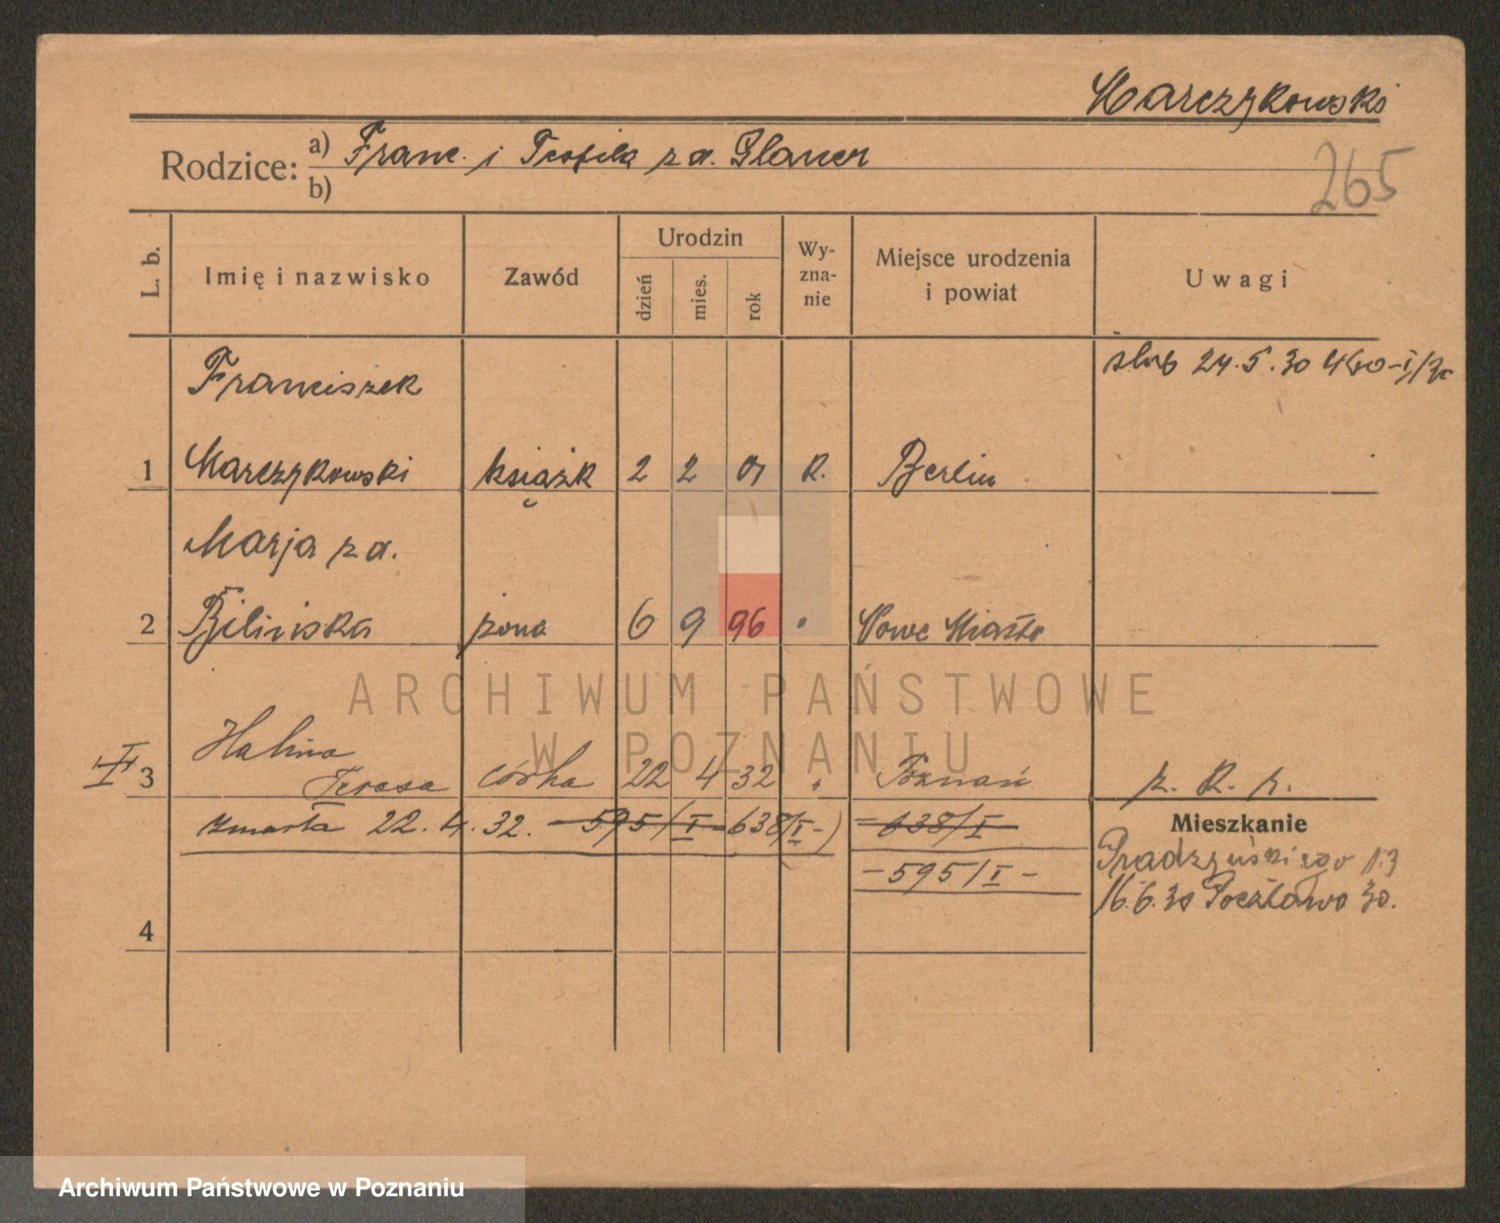 Marczykowski
Rodzice: a) Franc. i Teofila z d. Glaner
b)
265
L. b.
Imię i nazwisko
Zawód
Urodzin
dzień
mies.
rok
Wy-
zna-
nie
Miejsce urodzenia
i powiat
Uwagi
Franciszek
ślub 24.5.30
1 Marczykowski książk 2 2 01 R. Berlin
Marja z d.
2 Bilińska żona 6 9 96 " Nowe Miasto
ARCHIWUM PAŃSTWOWE
W POZNANIU
Halina
3 Teresa córka 22 4 32 " Poznań
zmarła 22.4.32. -595/I- 638/I-) -638/I-
-595/I-
Mieszkanie
Prądzyńskiego
16.6.30 Pocztowa 30.
4
Archiwum Państwowe w Poznaniu